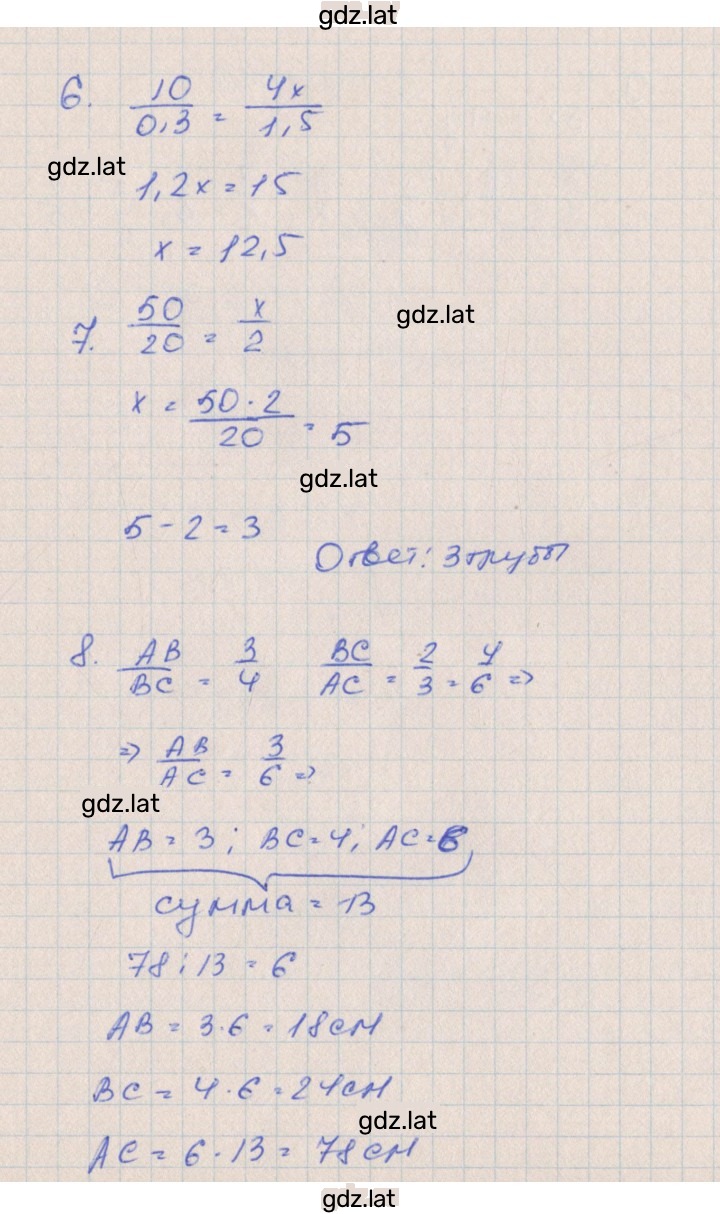 gdz.lat
6. 10/0,3 = 4x/1,5
gdz.lat
1,2x = 15
x = 12,5
7. 50/20 = x/2
gdz.lat
x = 50·2/20 = 5
gdz.lat
5 - 2 = 3
Ответ: 3 трубы
8. AB/BC = 3/4 BC/AC = 2/3 = 4/6 =>
=> AB/AC = 3/6 =>
gdz.lat
AB = 3; BC = 4; AC = 6
сумма = 13
78 : 13 = 6
AB = 3·6 = 18см
BC = 4·6 = 24см
gdz.lat
AC = 6·13 = 78см
gdz.lat